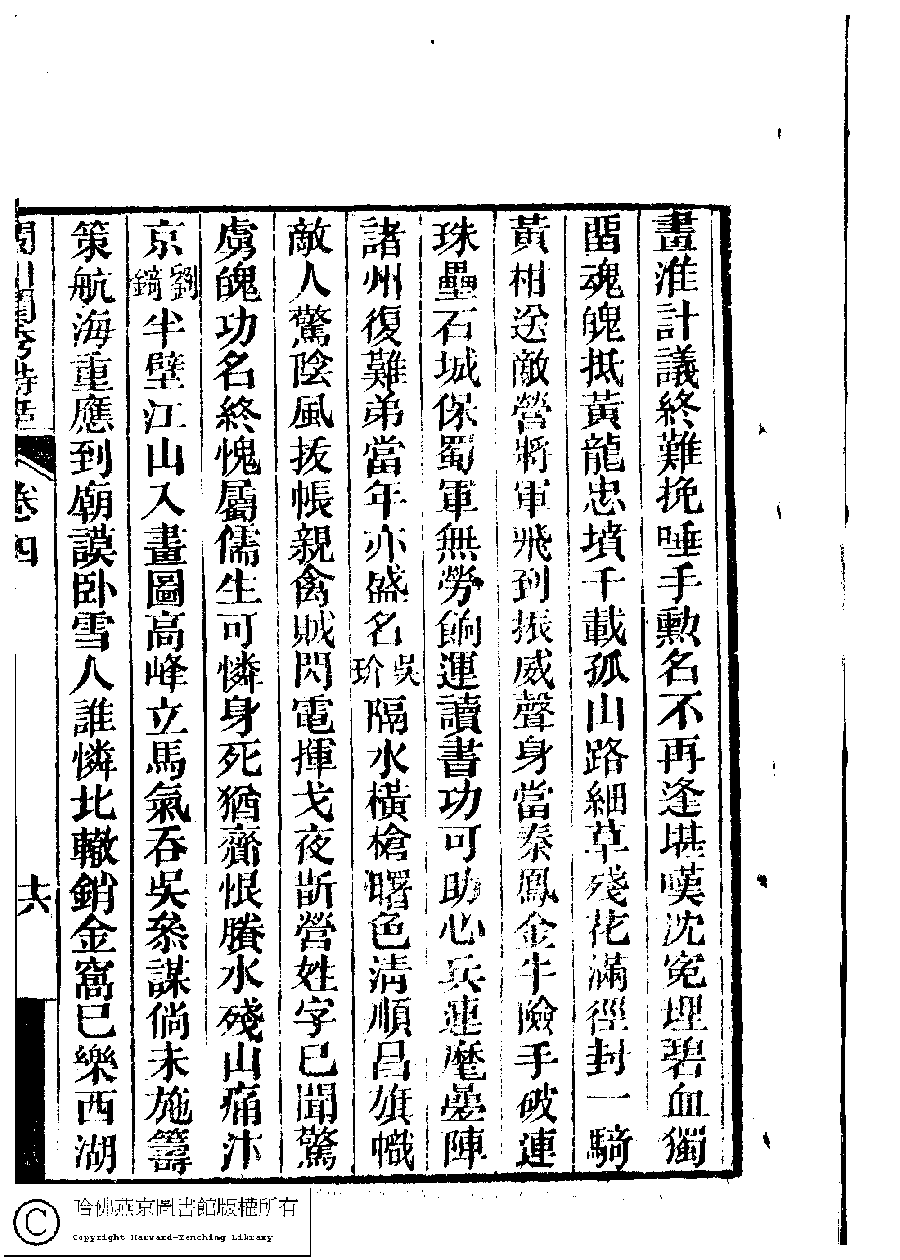 畫淮計議終難挽唾手勲名不再逢堪嘆沈寃埋碧血獨
畱魂魄抵黃龍忠墳千載孤山路細草殘花滿徑封一騎
黃柑送敵營將軍飛到振威聲身當秦鳳金牛險手破連
珠壘石城保蜀軍無勞餉運讀書功可助心兵連麾曡陣
諸州復難弟當年亦盛名吳玠隔水橫槍曙色清順昌旗幟
敵人驚陰風拔帳親禽賊閃電揮戈夜斫營姓字已聞驚
虜魄功名終愧屬儒生可憐身死猶齎恨賸水殘山痛汴
京劉錡半壁江山入畫圖高峰立馬氣吞吳叅謀倘未施籌
策航海重應到廟謨卧雪人誰憐北轍銷金窩已樂西湖
閩川閨秀詩話 卷四 十六
哈佛燕京圖書館版權所有
Copyright Harvard-Yenching Library